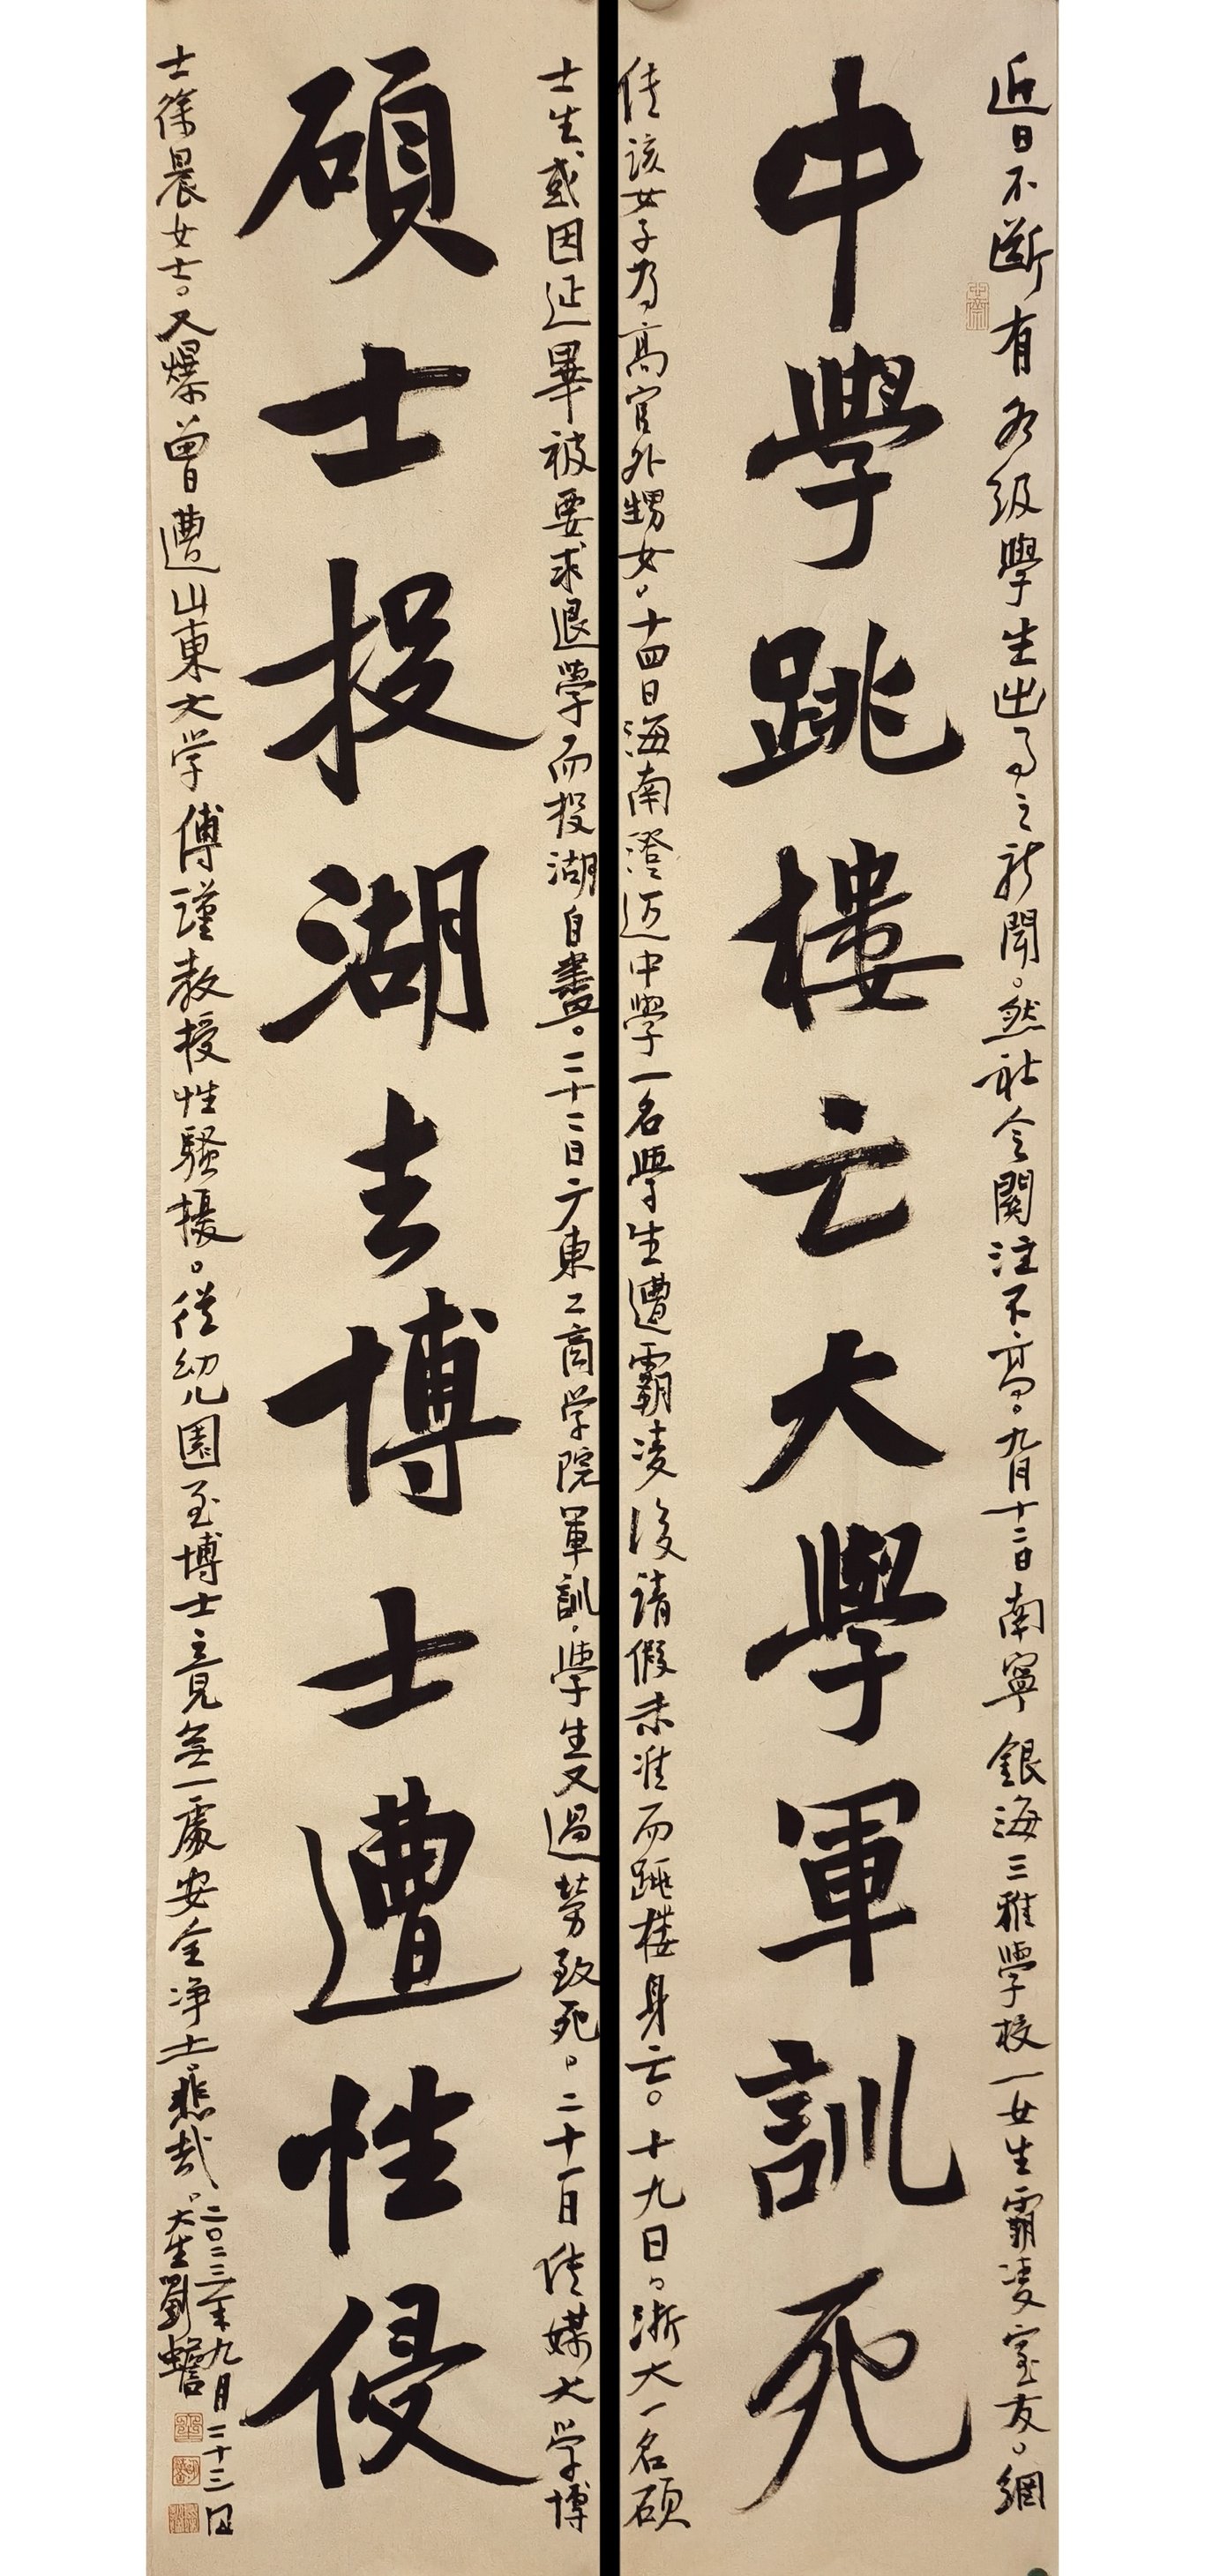 近日不斷有各级學生出事之新聞。然社会関注不高。九月十二日南寧銀海三雅學校一女生霸凌室友。網
中學跳樓亡大學軍訓死
传该女子为高官外甥女。十四日海南澄迈中學一名學生遭霸凌後請假未准而跳楼身亡。十九日，浙大一名硕
士生或因延畢被要求退學而投湖自盡。二十二日广東工商学院軍訓，學生又過勞致死。二十一日传媒大学博
碩士投湖去博士遭性侵
士徐晨女士。又爆曾遭山東大学傅謹教授性騷擾。從幼儿園至博士竟無一處安全净土。悲哉。
二〇二三年九月二十三日
大生劉蟾